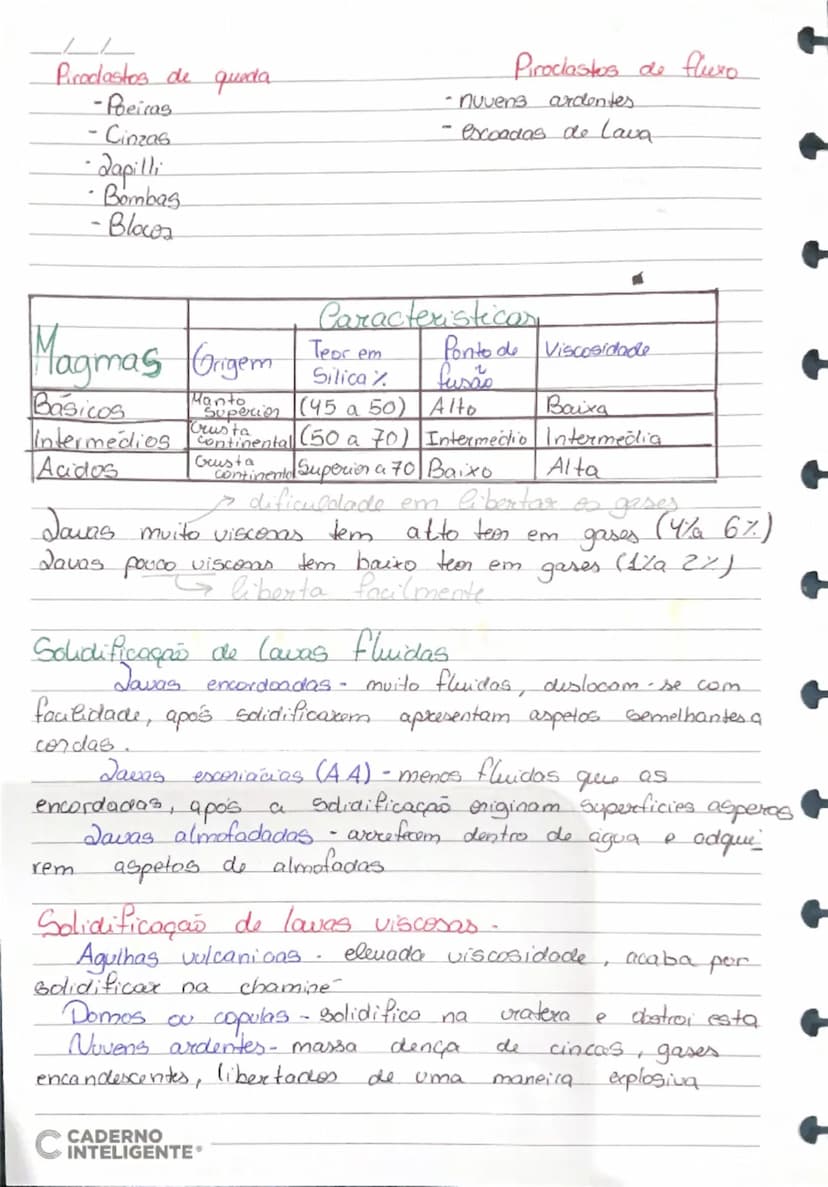 __/__/__
Piroclastos de queda
Piroclastos de fluxo
- Poeiras
- nuvens ardentes
- Cinzas
- escoadas de lava
- Lapilli
- Bombas
- Blocos
Magmas
Caracteristicas
Origem
Teor em Silica %
Ponto de fusão
Viscosidade
Básicos Manto Superior (45 a 50) Alto Baixa
Intermédios Crusta continental (50 a 70) Intermedio Intermedia
Acidos Crusta continental Superior a 70 Baixo Alta
→ dificuldade em libertar os gases
Lavas muito viscosas tem alto teor em gases (4% a 6%)
Lavas pouco viscosas tem baixo teor em gases (1% a 2%)
↳ liberta facilmente
Solidificação de lavas fluidas
Lavas encordoadas - muito fluidas, deslocam-se com
facilidade, após solidificarem apresentam aspetos semelhantes a
cordas.
Lavas escoriácias (AA) - menos fluidas que as
encordadas, após a solidificação originam superficies asperas
Lavas almofadadas - arrefecem dentro de água e adqui-
rem aspetos de almofadas
Solidificação de lavas viscosas.
Agulhas vulcanicas - elevada viscosidade, acaba por
solidificar na chaminé
Domos ou copulas - solidifica na cratera e obstroi esta
Nuvens ardentes - massa dença de cincas, gases
encandescentes, libertados de uma maneira explosiva
CADERNO
INTELIGENTE®